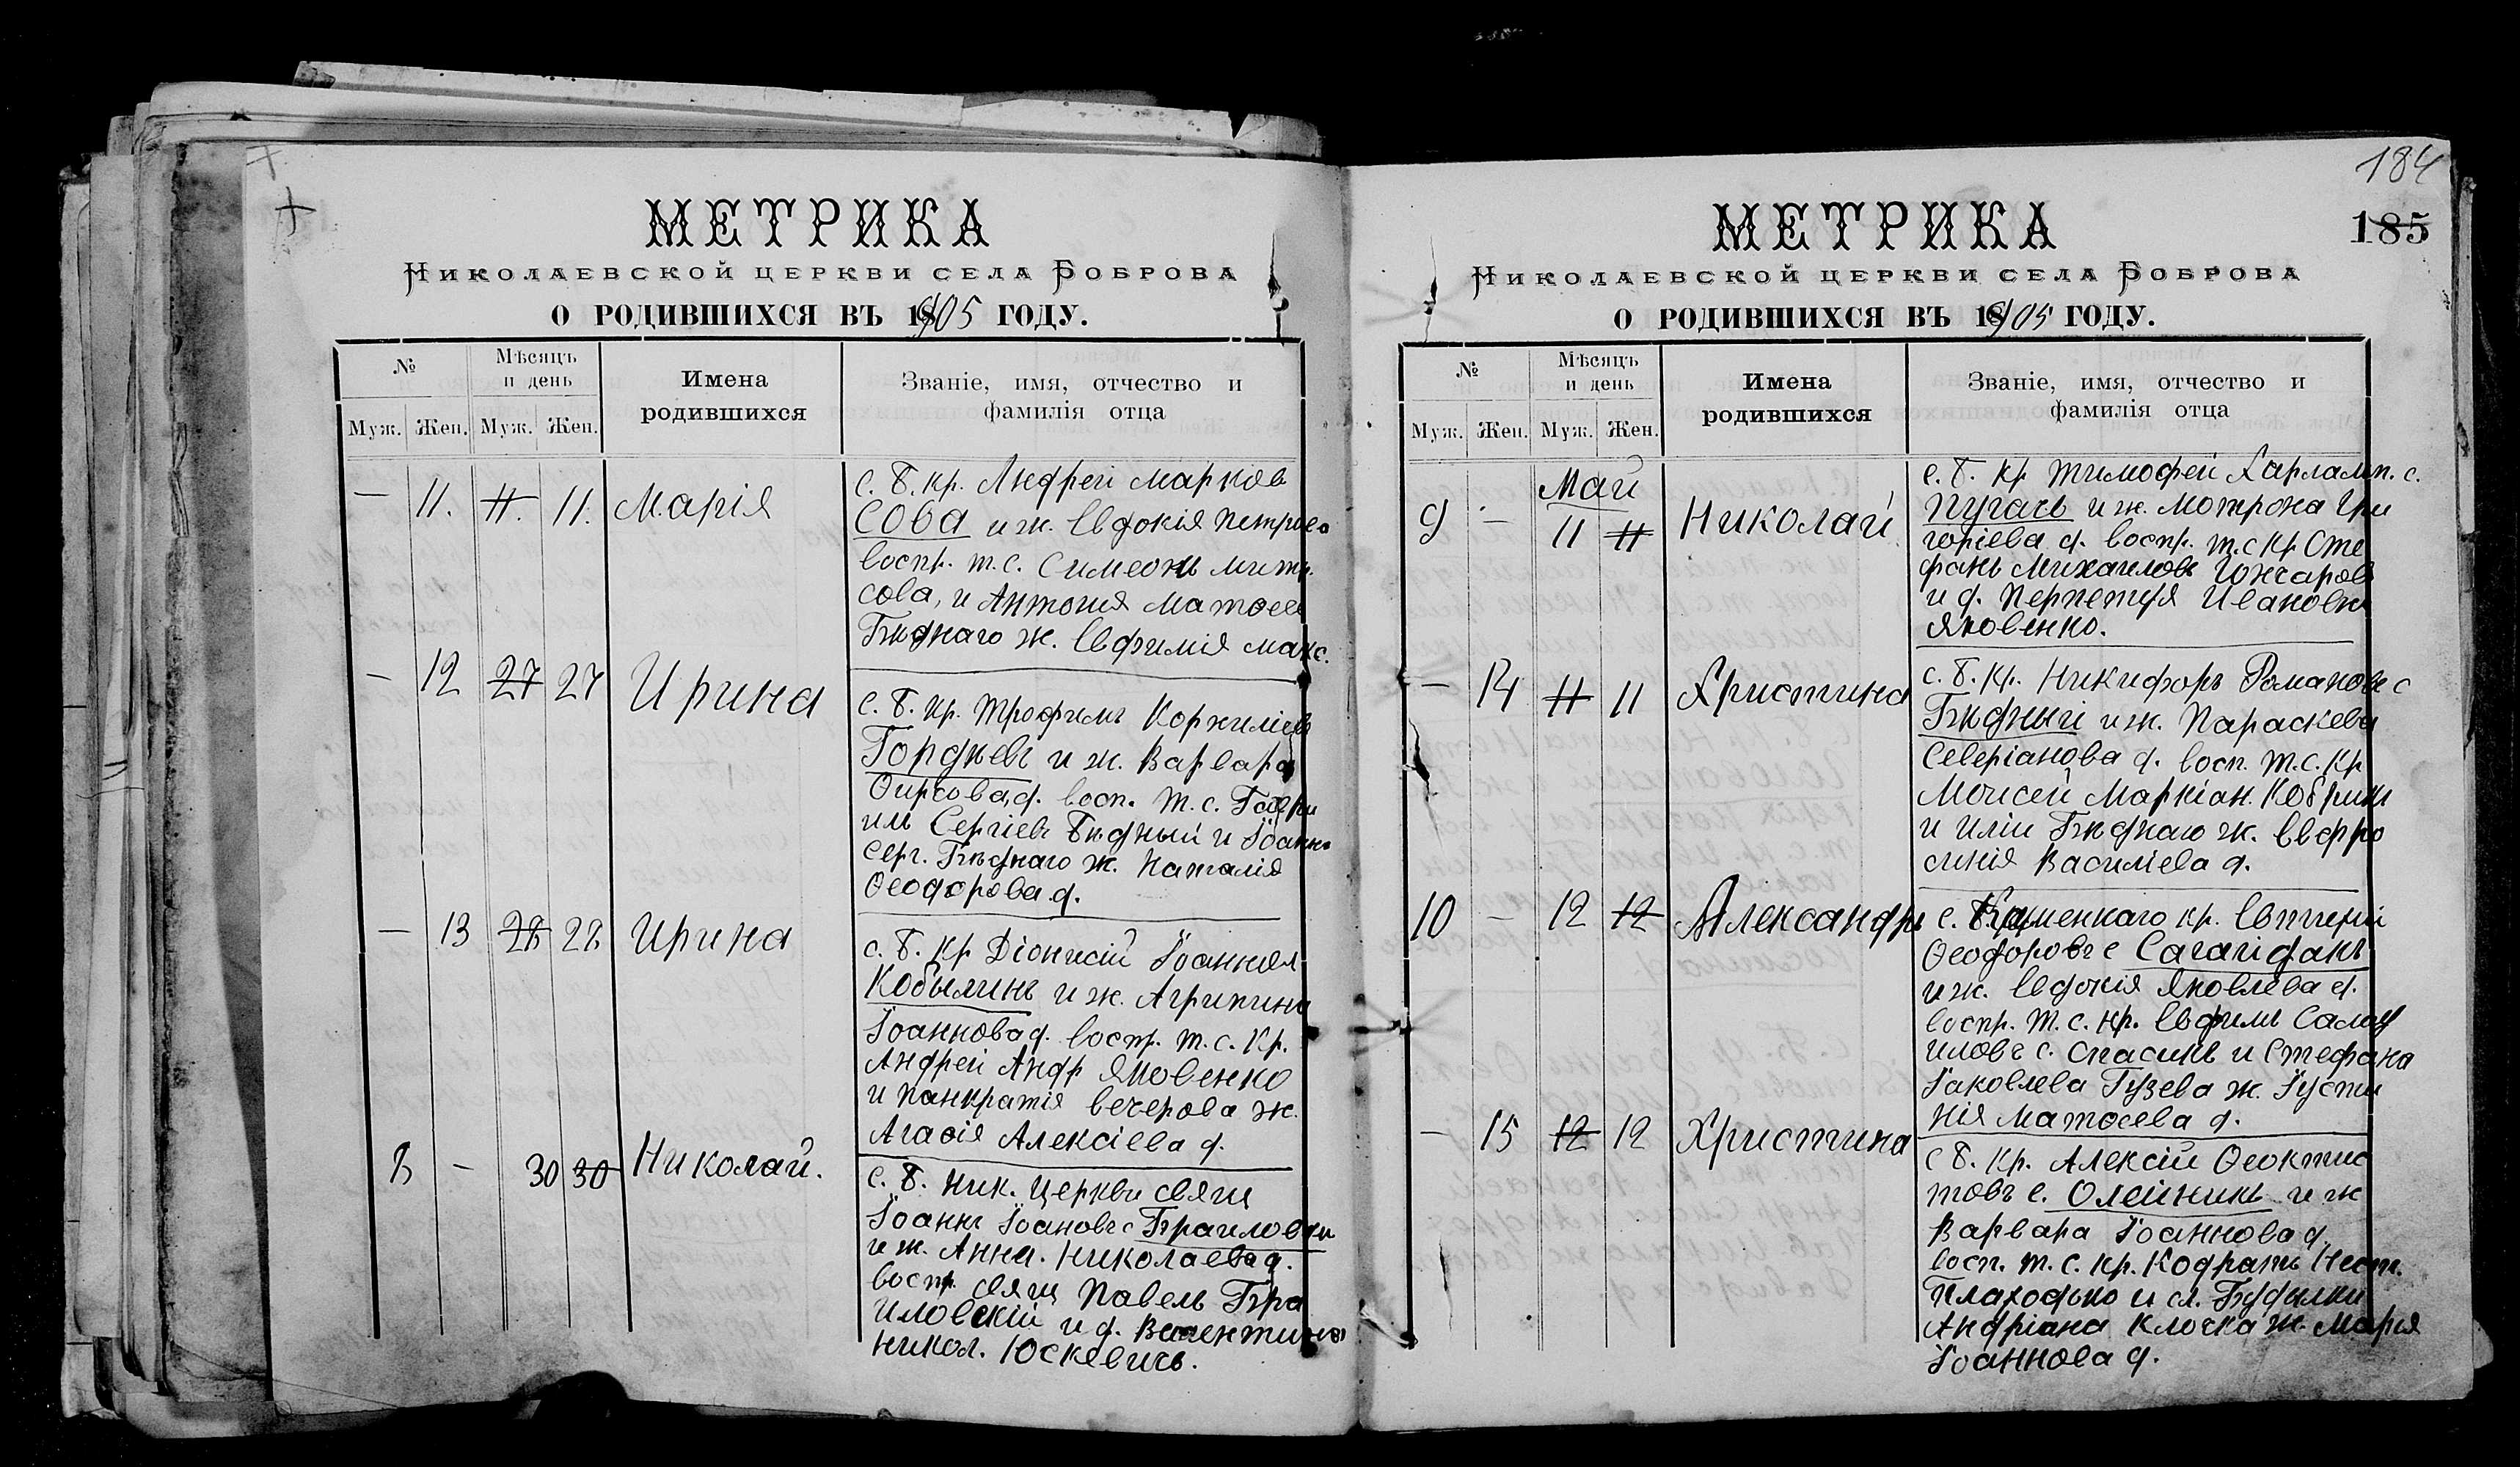 МЕТРИКА
НИКОЛАЕВСКОЙ ЦЕРКВИ СЕЛА БОБРОВА
О РОДИВШИХСЯ ВЪ 1905 ГОДУ.
№
Мѣсяцъ и день
Имена родившихся
Званіе, имя, отчество и фамилія отца
Муж. Жен. Муж. Жен.
— 11. 11. 11. Марія
с. Б. кр. Андрей Марков
Сова и ж. Евдокія Петрова
воспр. т. с. Симеонъ Митр.
Сова, и Антонія Матоеев
Бѣднаго ж. Евфимія Макс.
— 12 27 27 Ирина
с. Б. кр. Трофимъ Корниліевъ
Гордѣевъ и ж. Варвара
Оирсова д. восп. т. с. Гаври
илъ Сергіевъ Бѣдный и Іоанна
Серг. Бѣднаго ж. Наталія
Ѳеодорова д.
— 13 28 28 Ирина
с. Б. кр Діонисій Іоаннов
Кобылинъ и ж. Агрипина
Іоаннова д. воспр. т. с. кр.
Андрей Андр Яковенко
и Панкратія Вечерова ж.
Агаѳія Алексіева д.
8 — 30 30 Николай.
с. Б. Ник. церкви свящ
Іоаннъ Іоановъ с Браиловски
и ж. Анна. Николаева д.
воспр. свящ Павелъ Бра
иловскій и д. Валентина
Никол. Юскевичъ.
184
185
МЕТРИКА
НИКОЛАЕВСКОЙ ЦЕРКВИ СЕЛА БОБРОВА
О РОДИВШИХСЯ ВЪ 1905 ГОДУ.
№
Мѣсяцъ и день
Имена родившихся
Званіе, имя, отчество и фамилія отца
Муж. Жен. Муж. Жен.
Май
9 — 11 11 Николай
с. Б. кр Тимофей Харламп. с.
Пугачъ и ж. Мотрона Гри
горіева д. воспр. т. с кр Сте
фанъ Михаиловъ Гончаровъ
и д. Перпетуя Ивановна
Яковенко.
— 14 11 11 Христина
с. Б. кр. Никифоръ Романовъ с
Бѣдный и ж. Параскева
Северіанова д. восп. т. с. кр
Моисей Маркіан. Кобринъ
и Иліи Бѣднаго ж. Евфро
синія Василіева д.
10 — 12 12 Александръ
с. Каменнаго кр. Евтихій
Ѳеодоровъ с Сагайдакъ
и ж. Евдокія Яковлева д.
воспр. т. с. кр. Евфимъ Саму
иловъ с. Спасикъ и Стефана
Іаковлева Гузева ж. Іусти
нія Матоеева д.
— 15 12 12 Христина
с Б. кр. Алексій Ѳеоктис
товъ с. Олейникъ и ж
Варвара Іоаннова д.
восп. т. с. кр. Кодратъ Нест.
Плаходько и сл. Будылки
Андріана Клочка ж. Марія
Іоаннова д.